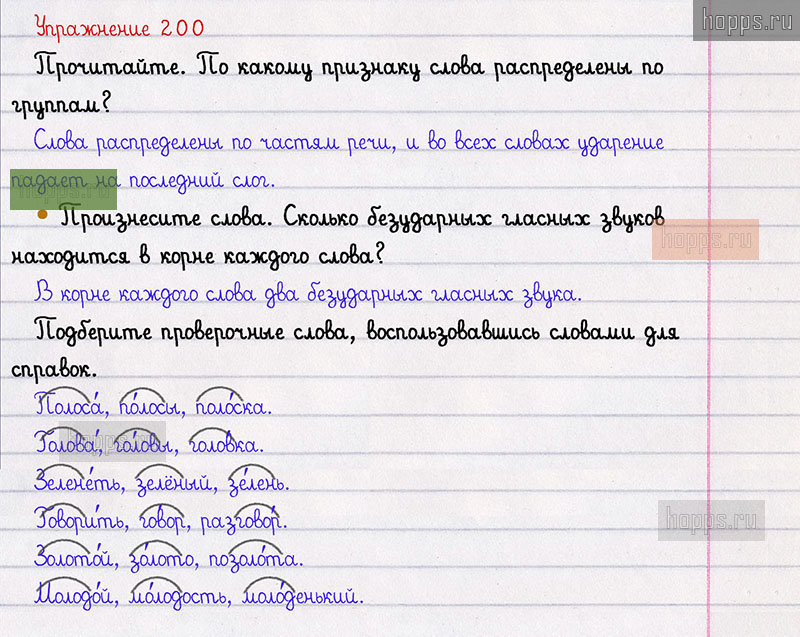 hopps.ru
Упражнение 200
Прочитайте. По какому признаку слова распределены по
группам?
Слова распределены по частям речи, и во всех словах ударение
падает на последний слог.
hopps.ru
• Произнесите слова. Сколько безударных гласных звуков
hopps.ru
находится в корне каждого слова?
В корне каждого слова два безударных гласных звука.
Подберите проверочные слова, воспользовавшись словами для
справок.
Полоса́, по́лосы, поло́ска.
Голова́, го́ловы, голо́вка.
hopps.ru
Зелене́ть, зелёный, зе́лень.
Говори́ть, го́вор, разгово́р.
hopps.ru
Золото́й, зо́лото, позоло́та.
Молодо́й, мо́лодость, моло́денький.